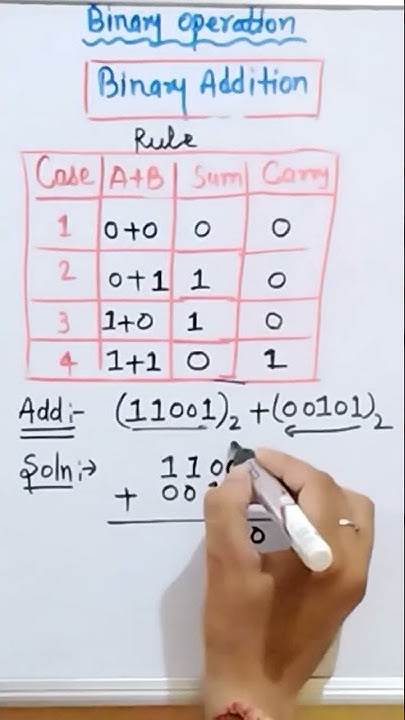 Binary operation
Binary Addition
Rule
Case A+B Sum Carry
1 0+0 0 0
2 0+1 1 0
3 1+0 1 0
4 1+1 0 1
Add:- (11001)₂ +(00101)₂
Soln:→ 110
+ 00
0